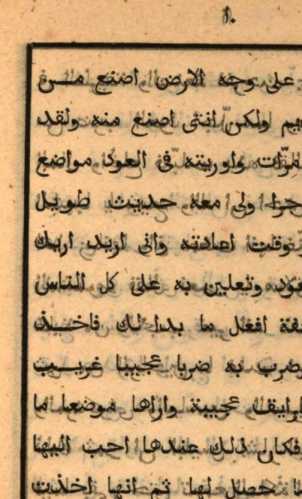 على وجه الارض اصنع مـــن
هيم ولكنّ انثى اصنع منه ولقد
مرّات واوريته فى العود مواضع
ولى معه حديث طويل
وقت اعادته وانى اريد اريك
عود وتعلين به على كل الناس
افعل ما بدا لك فاخـــذ
يضرب به ضربا عجيبا غريـــب
عجيبة واراها موضعا ما
فكان ذلك عندها احب اليها
حصل لها ثم انها اخذت